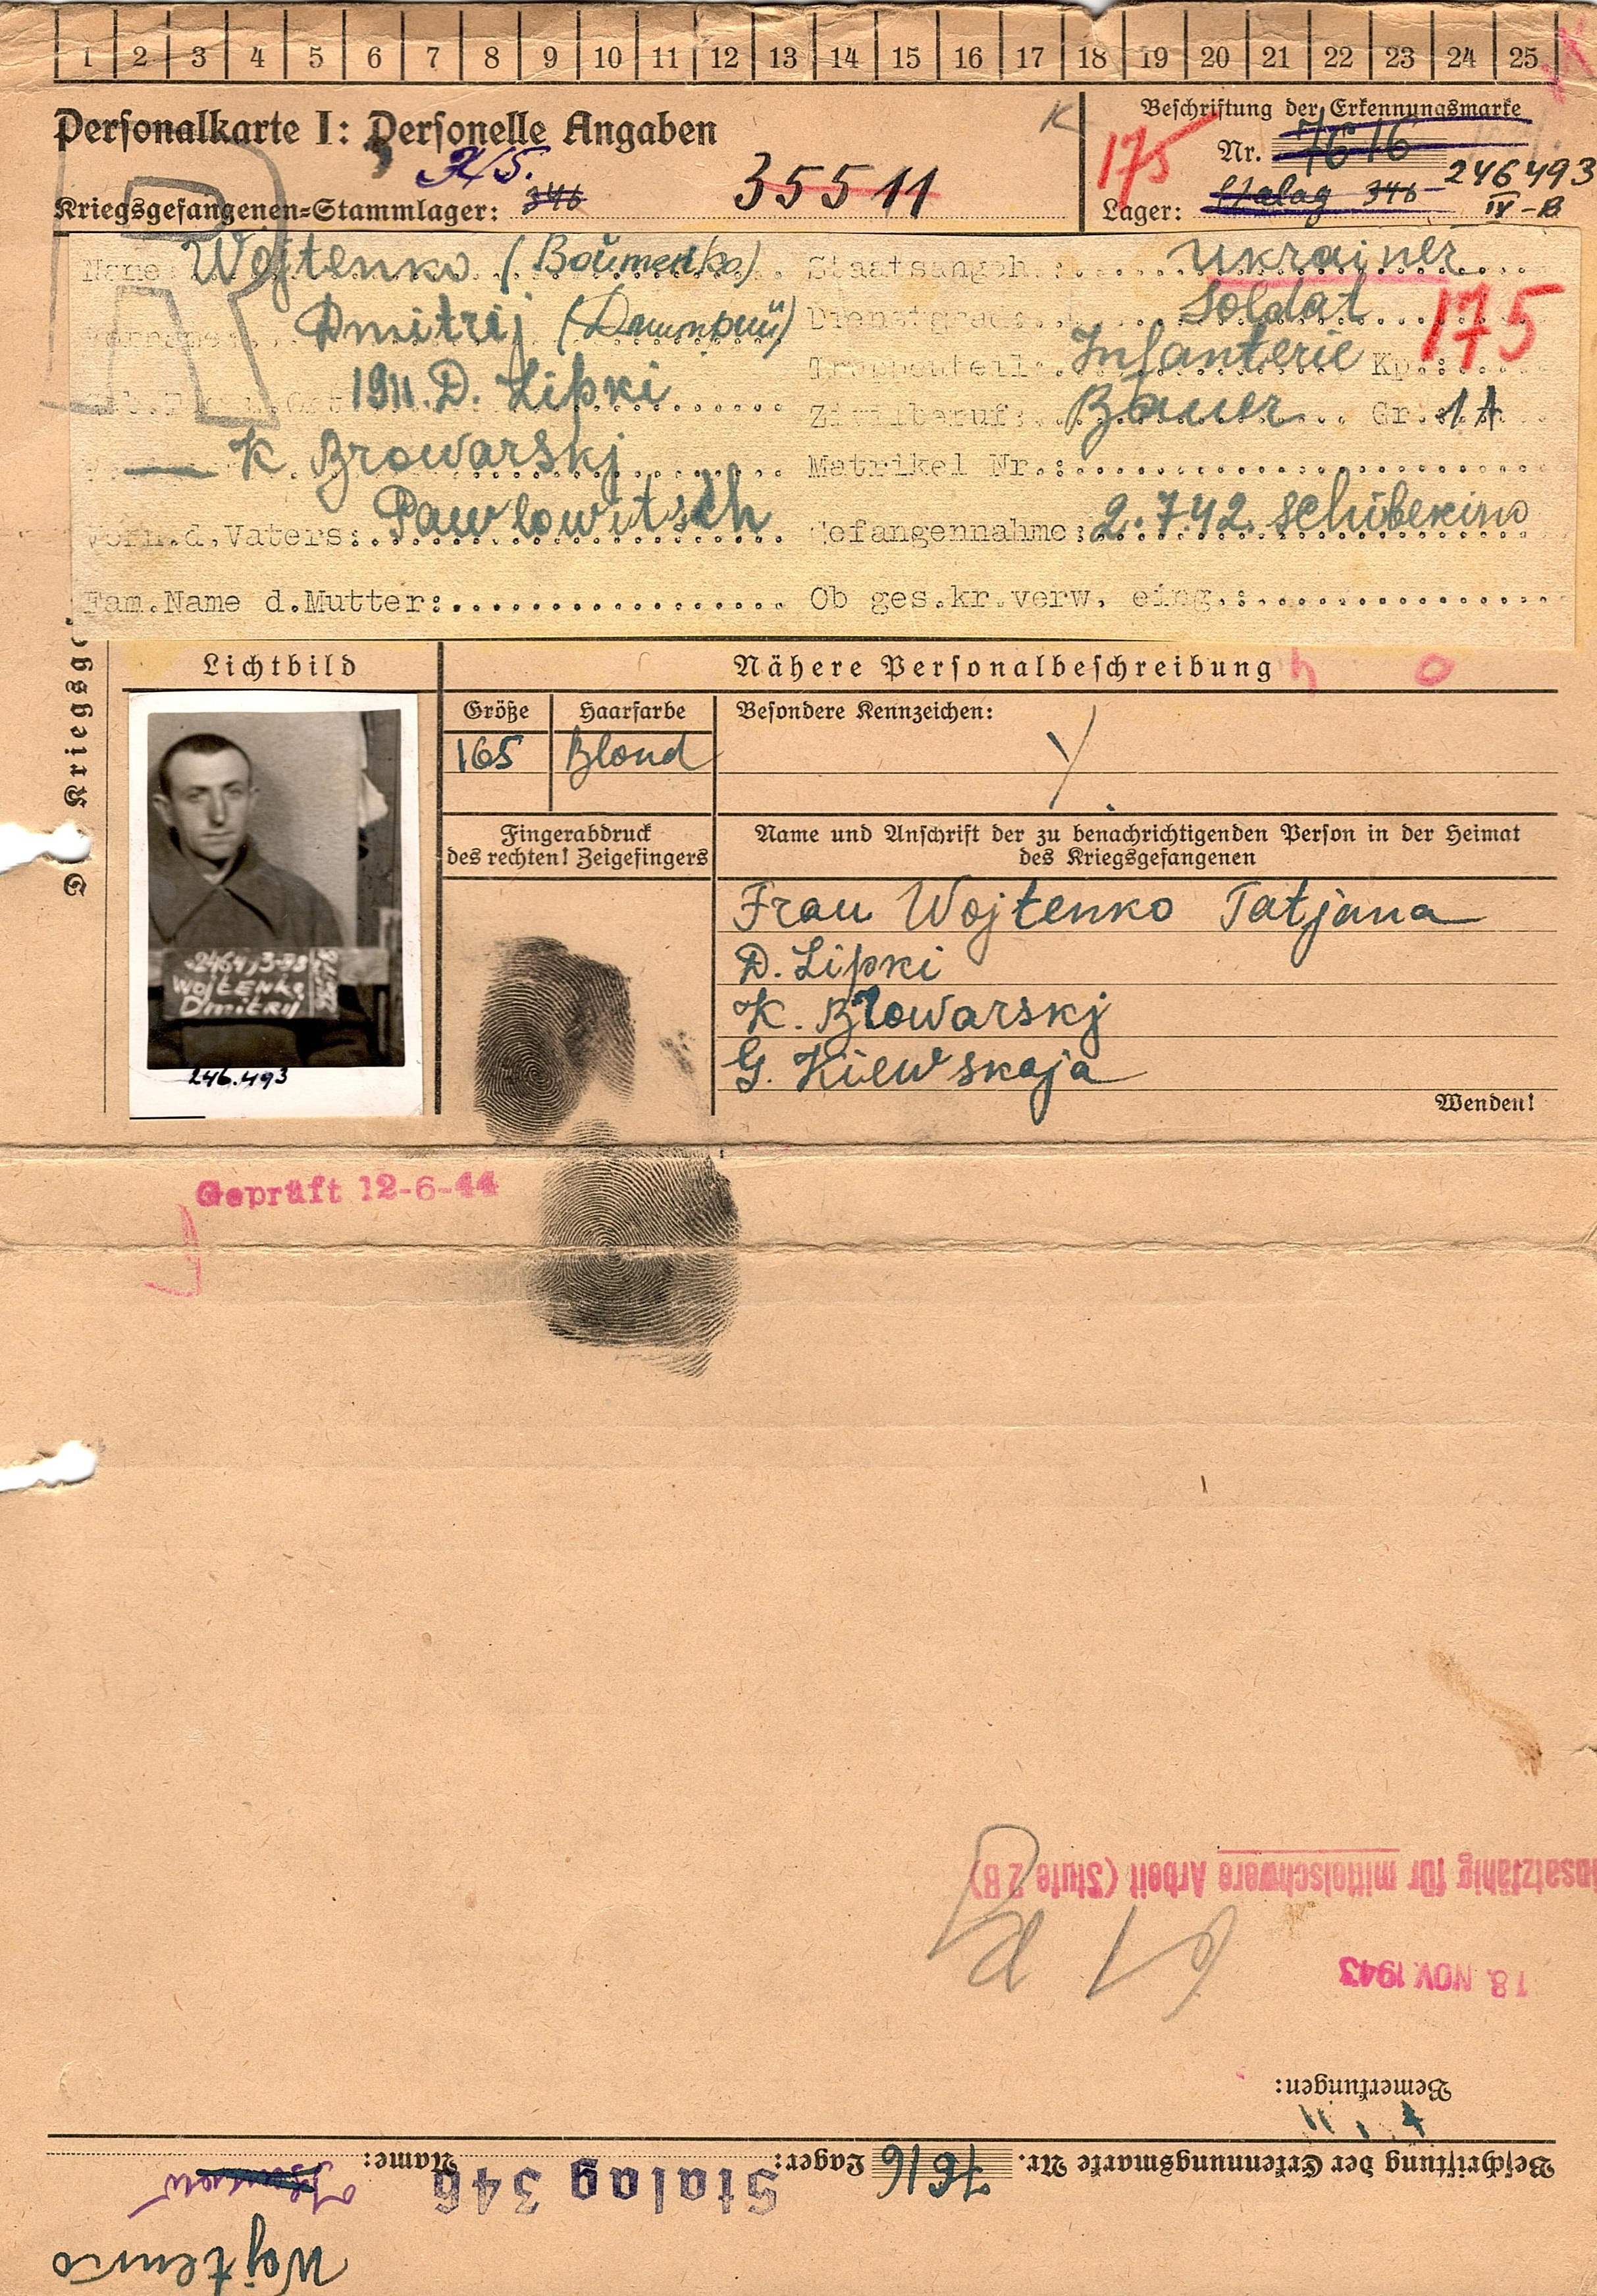 1 2 3 4 5 6 7 8 9 10 11 12 13 14 15 16 17 18 19 20 21 22 23 24 25
Personalkarte I: Personelle Angaben
K
175
Beschriftung der Erkennungsmarke
Nr. 7616
246493
IV-B
Kriegsgefangenen-Stammlager: 346
35511
Lager: Stalag 346
Name: Wojtenko (Войтенко) Staatsangeh.: Ukrainer
Vorname: Dmitrij (Дмитрий) Dienstgrad: Soldat
175
Truppenteil: Infanterie Kp.:
1911. D. Lipki Zivilberuf: Bauer Gr.
K. Browarskj Matrikel Nr.:
Vorn.d.Vaters: Pawlowitsch Gefangennahme: 2.7.42. Schibekino
Fam.Name d.Mutter: Ob ges.kr.verw. eing.:
Lichtbild
Nähere Personalbeschreibung
Größe Haarfarbe Besondere Kennzeichen:
165 Blond
Fingerabdruck
des rechten! Zeigefingers
Name und Anschrift der zu benachrichtigenden Person in der Heimat
des Kriegsgefangenen
Frau Wojtenko Tatjana
D. Lipki
K. Browarskj
G. Kiewskaja
Wenden!
Wojtenko
Dmitrij
246.493
Geprüft 12-6-44
insatzfähig für mittelschwere Arbeit (Stufe 2B)
18. NOV. 1943
Bemerkungen:
Beschriftung der Erkennungsmarke Nr. 7616 Lager: Stalag 346 Name:
Wojtenko